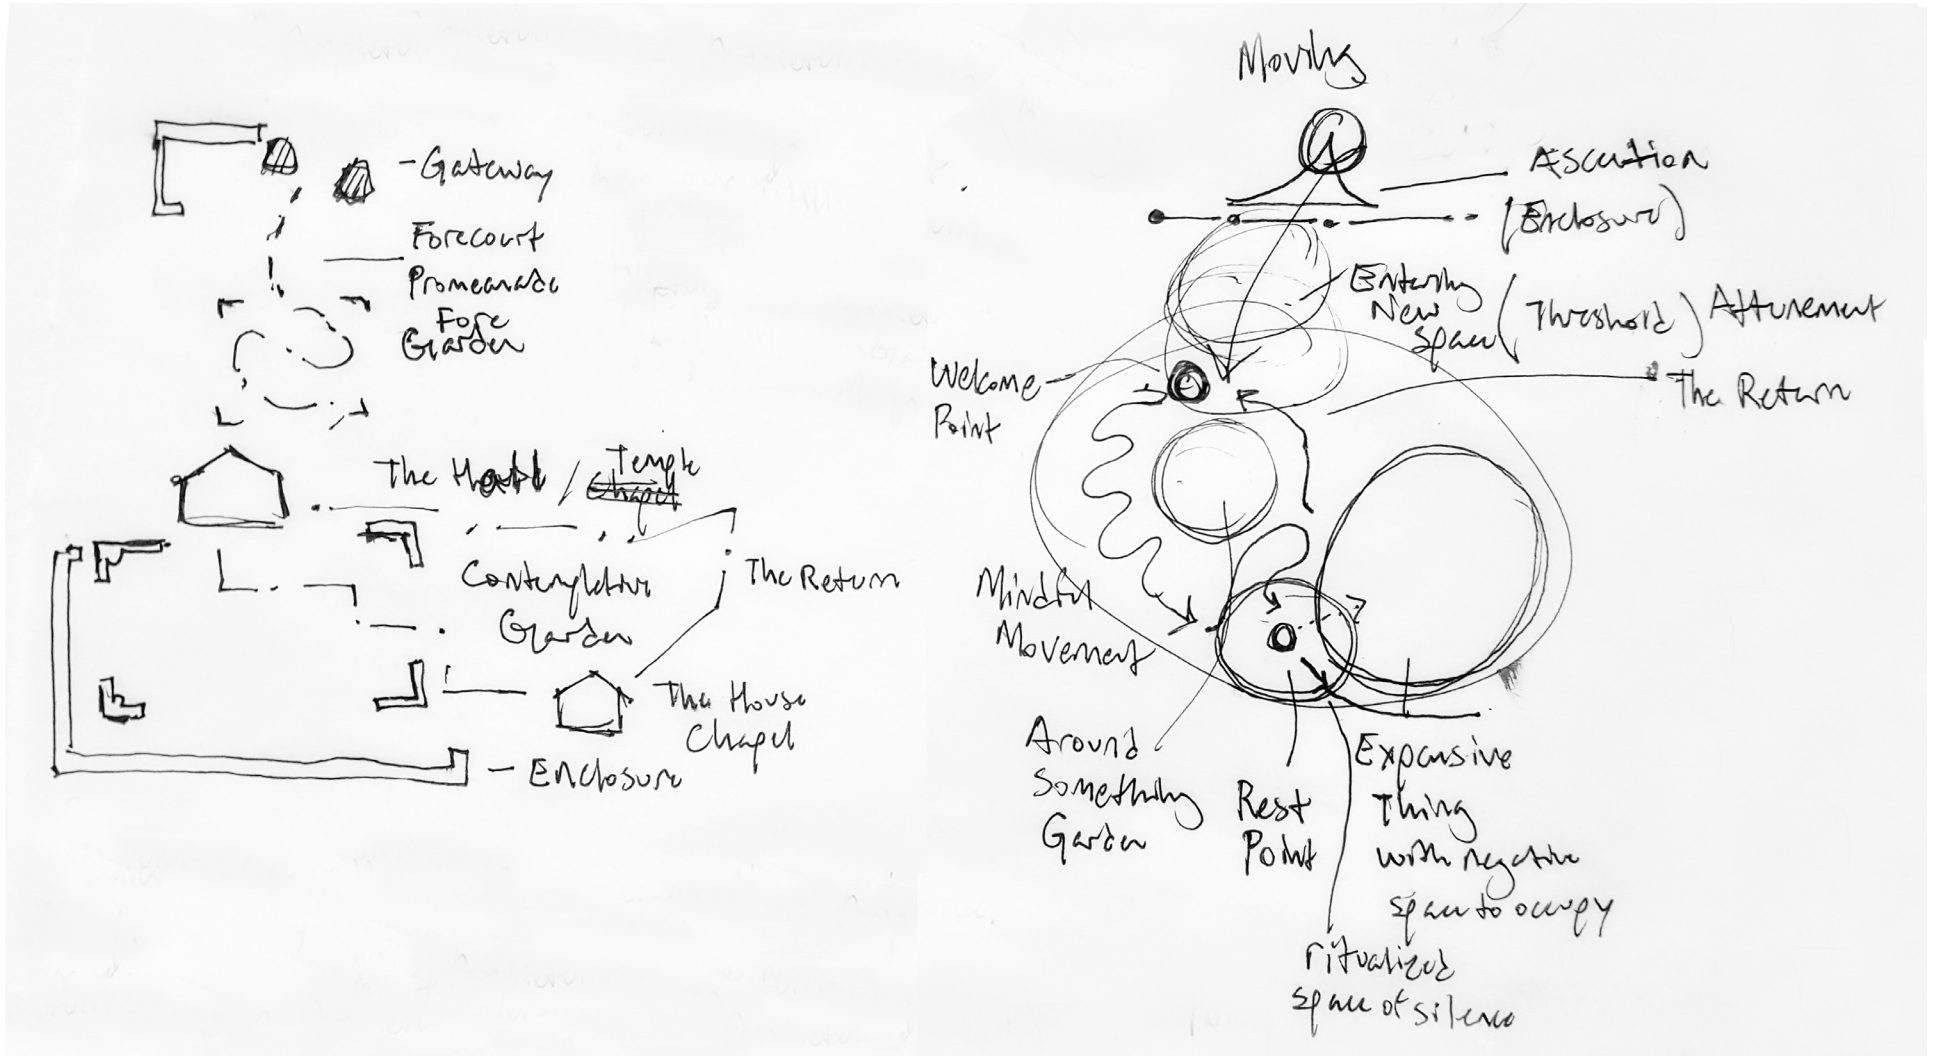 - Gateway
Forecourt
Promenade
Fore
Garden
The Hall / Temple
Chapel
Contemplative
Garden
The Return
The House
Chapel
- Enclosure
Moving
(Enclosure)
Entering
New
Space (Threshold) Attunement
Welcome
Point
The Return
Mindful
Movement
Around
Something
Garden
Rest
Point
Expansive
Thing
with negative
space to occupy
ritualized
space of silence